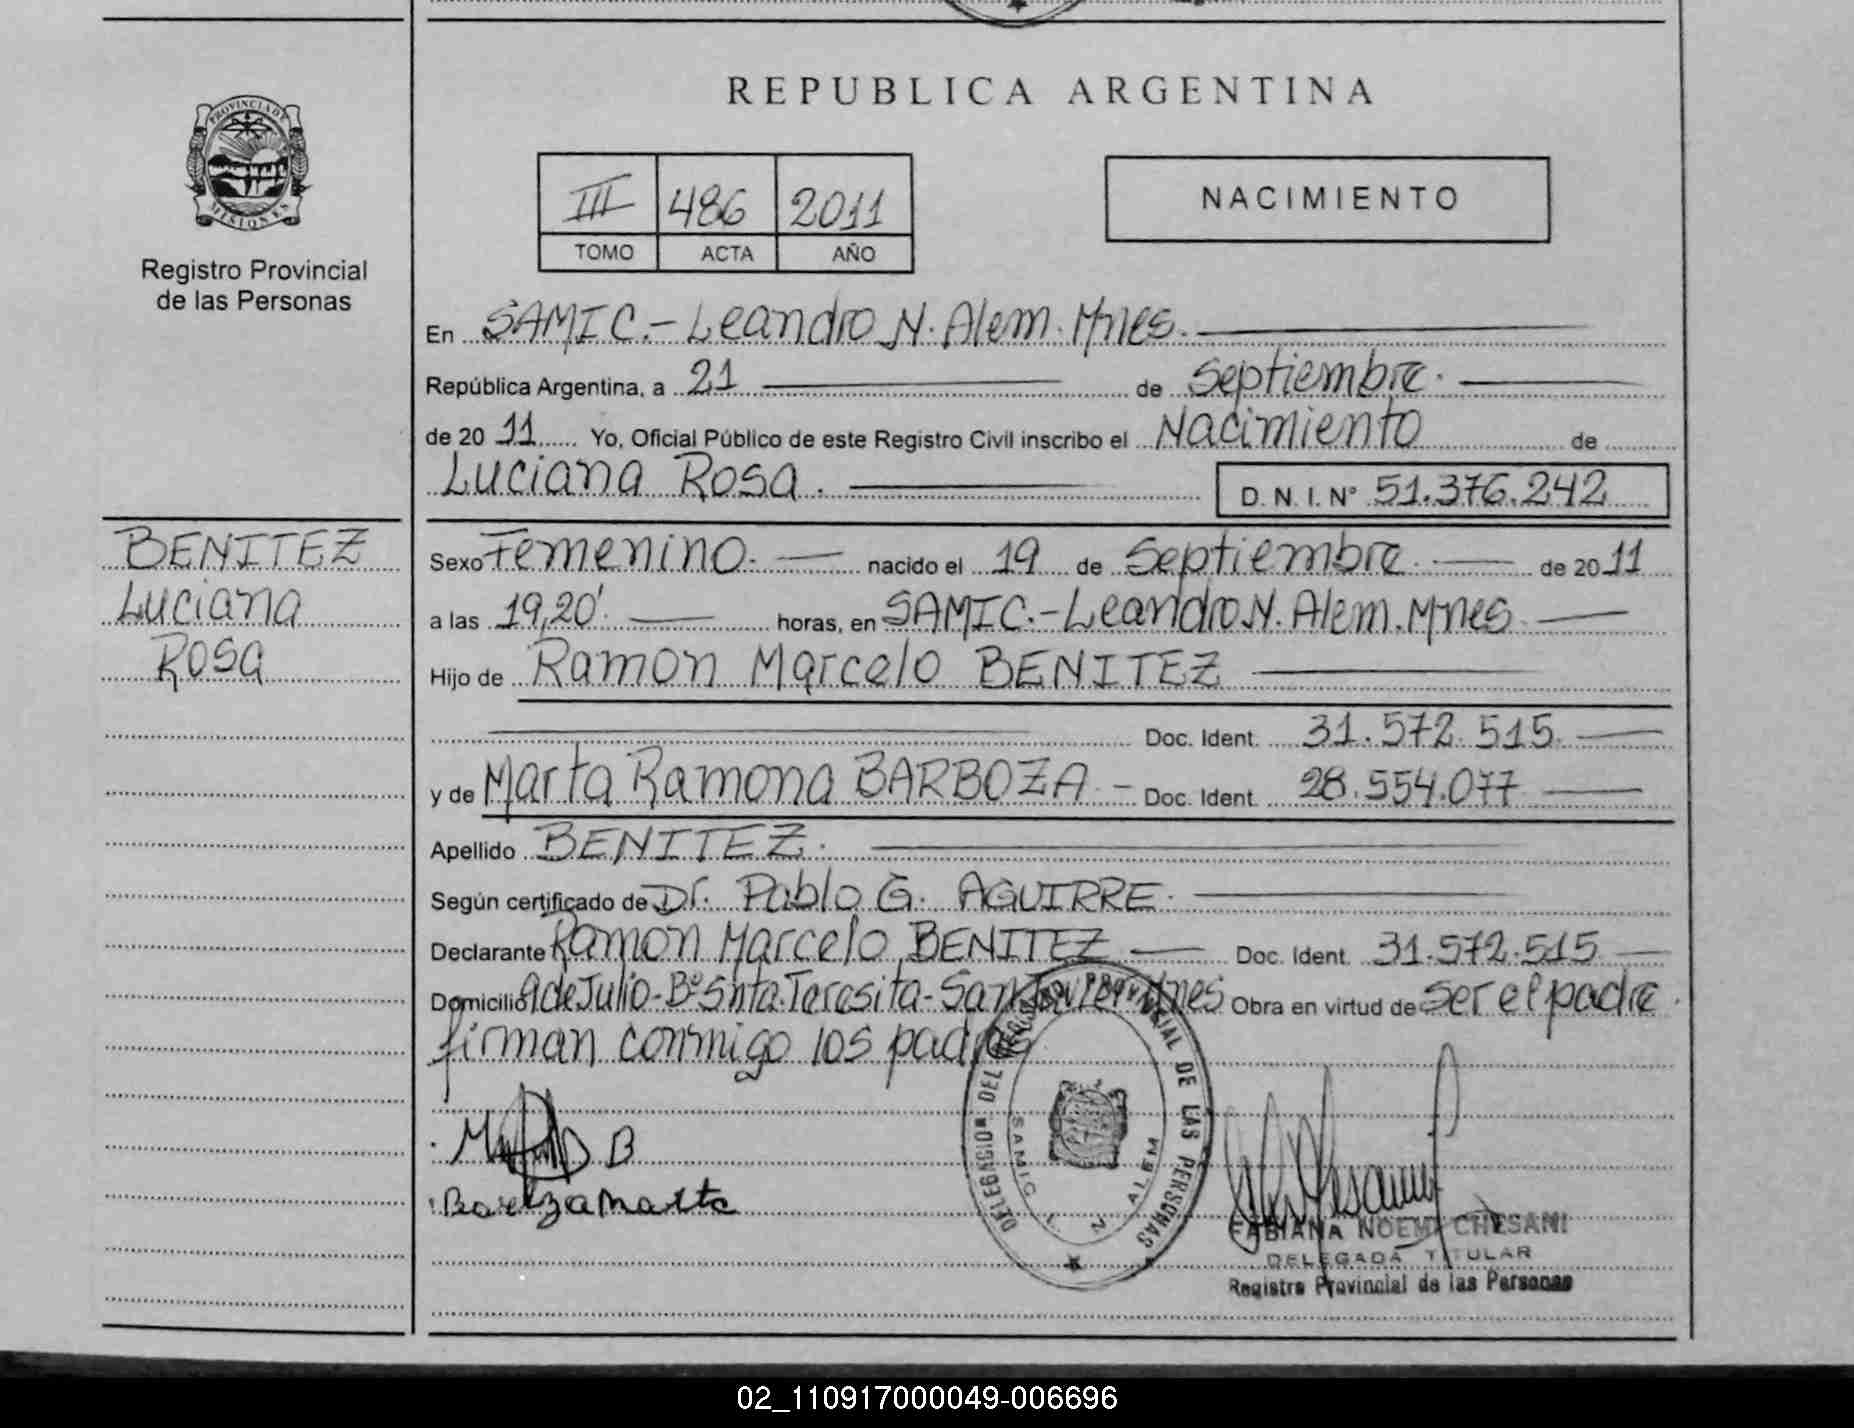 REPUBLICA ARGENTINA
PROVINCIA DE
MISIONES
Registro Provincial
de las Personas
III 486 2011
TOMO ACTA AÑO
NACIMIENTO
En SAMIC.- Leandro N. Alem. Mnes.
República Argentina, a 21 de Septiembre.
de 20 11 Yo, Oficial Público de este Registro Civil inscribo el Nacimiento de
Luciana Rosa. D. N. I. N° 51.376.242
BENITEZ
Luciana
Rosa
Sexo Femenino. nacido el 19 de Septiembre. de 20 11
a las 19,20' horas, en SAMIC.- Leandro N. Alem. Mnes
Hijo de Ramon Marcelo BENITEZ
Doc. Ident. 31.572.515
y de Marta Ramona BARBOZA - Doc. Ident. 28.554.077
Apellido BENITEZ.
Según certificado de Dr. Pablo G. AGUIRRE.
Declarante Ramon Marcelo BENITEZ Doc. Ident. 31.572.515
Domicilio 9 de Julio - B° Snta. Teresita - San Javier Mnes Obra en virtud de ser el padre.
firman conmigo los padres
DELEGACION DEL REGISTRO PROVINCIAL DE LAS PERSONAS
SAMIC L N ALEM
B
Marta
FABIANA NOEMI CHESANI
DELEGADA TITULAR
Registro Provincial de las Personas
02_110917000049-006696